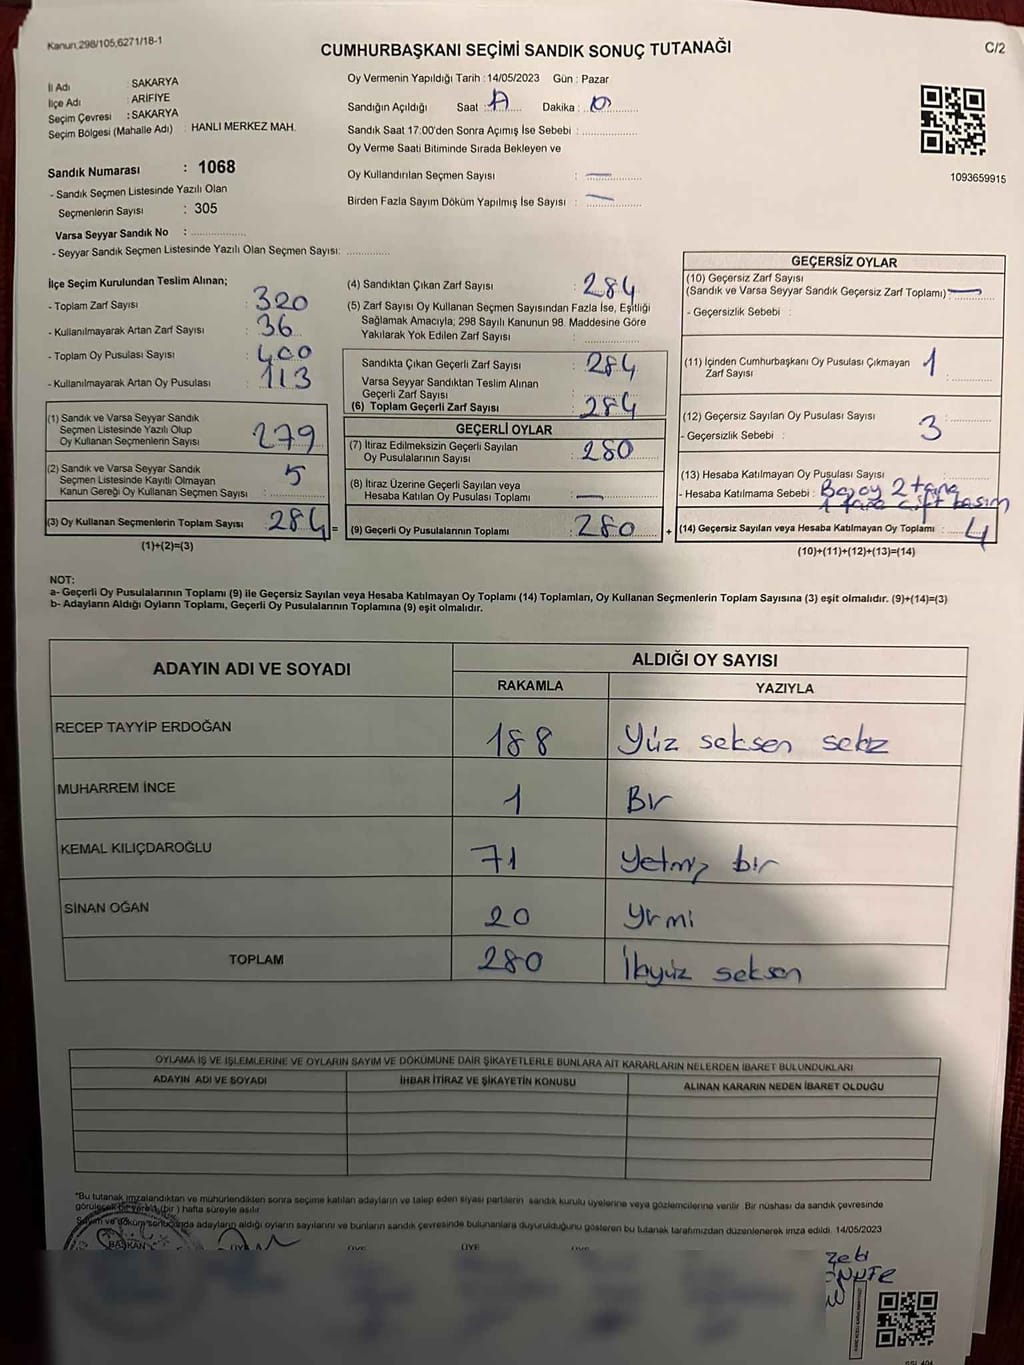 Kanun;298/105;6271/18-1
CUMHURBAŞKANI SEÇİMİ SANDIK SONUÇ TUTANAĞI
C/2
İl Adı : SAKARYA
İlçe Adı : ARİFİYE
Seçim Çevresi : SAKARYA
Seçim Bölgesi (Mahalle Adı) : HANLI MERKEZ MAH.
Sandık Numarası : 1068
- Sandık Seçmen Listesinde Yazılı Olan
Seçmenlerin Sayısı : 305
Varsa Seyyar Sandık No :
- Seyyar Sandık Seçmen Listesinde Yazılı Olan Seçmen Sayısı:
Oy Vermenin Yapıldığı Tarih : 14/05/2023 Gün : Pazar
Sandığın Açıldığı Saat : Dakika :
Sandık Saat 17:00'den Sonra Açımış İse Sebebi :
Oy Verme Saati Bitiminde Sırada Bekleyen ve
Oy Kullandırılan Seçmen Sayısı : —
Birden Fazla Sayım Döküm Yapılmış İse Sayısı : —
1093659915
İlçe Seçim Kurulundan Teslim Alınan;
- Toplam Zarf Sayısı : 320
- Kullanılmayarak Artan Zarf Sayısı : 36
- Toplam Oy Pusulası Sayısı : 400
- Kullanılmayarak Artan Oy Pusulası : 113
(1) Sandık ve Varsa Seyyar Sandık
Seçmen Listesinde Yazılı Olup
Oy Kullanan Seçmenlerin Sayısı : 279
(2) Sandık ve Varsa Seyyar Sandık
Seçmen Listesinde Kayıtlı Olmayan
Kanun Gereği Oy Kullanan Seçmen Sayısı : 5
(3) Oy Kullanan Seçmenlerin Toplam Sayısı : 284 =
(1)+(2)=(3)
(4) Sandıktan Çıkan Zarf Sayısı : 284
(5) Zarf Sayısı Oy Kullanan Seçmen Sayısından Fazla İse, Eşitliği
Sağlamak Amacıyla; 298 Sayılı Kanunun 98. Maddesine Göre
Yakılarak Yok Edilen Zarf Sayısı :
Sandıkta Çıkan Geçerli Zarf Sayısı : 284
Varsa Seyyar Sandıktan Teslim Alınan
Geçerli Zarf Sayısı :
(6) Toplam Geçerli Zarf Sayısı : 284
GEÇERLİ OYLAR
(7) İtiraz Edilmeksizin Geçerli Sayılan
Oy Pusulalarının Sayısı : 280
(8) İtiraz Üzerine Geçerli Sayılan veya
Hesaba Katılan Oy Pusulası Toplamı : —
(9) Geçerli Oy Pusulalarının Toplamı : 280 +
GEÇERSİZ OYLAR
(10) Geçersiz Zarf Sayısı
(Sandık ve Varsa Seyyar Sandık Geçersiz Zarf Toplamı) : —
- Geçersizlik Sebebi :
(11) İçinden Cumhurbaşkanı Oy Pusulası Çıkmayan
Zarf Sayısı : 1
(12) Geçersiz Sayılan Oy Pusulası Sayısı : 3
- Geçersizlik Sebebi :
(13) Hesaba Katılmayan Oy Pusulası Sayısı :
- Hesaba Katılmama Sebebi : Boş oy 2 tane
1 tane çift basım
(14) Geçersiz Sayılan veya Hesaba Katılmayan Oy Toplamı : 4
(10)+(11)+(12)+(13)=(14)
NOT:
a- Geçerli Oy Pusulalarının Toplamı (9) ile Geçersiz Sayılan veya Hesaba Katılmayan Oy Toplamı (14) Toplamları, Oy Kullanan Seçmenlerin Toplam Sayısına (3) eşit olmalıdır. (9)+(14)=(3)
b- Adayların Aldığı Oyların Toplamı, Geçerli Oy Pusulalarının Toplamına (9) eşit olmalıdır.
ADAYIN ADI VE SOYADI
ALDIĞI OY SAYISI
RAKAMLA YAZIYLA
RECEP TAYYİP ERDOĞAN 188 Yüz seksen sekz
MUHARREM İNCE 1 Bir
KEMAL KILIÇDAROĞLU 71 Yetmiş bir
SİNAN OĞAN 20 Yrmi
TOPLAM 280 İkiyüz seksen
OYLAMA İŞ VE İŞLEMLERİNE VE OYLARIN SAYIM VE DÖKÜMÜNE DAİR ŞİKAYETLERLE BUNLARA AİT KARARLARIN NELERDEN İBARET BULUNDUKLARI
ADAYIN ADI VE SOYADI İHBAR İTİRAZ VE ŞİKAYETİN KONUSU ALINAN KARARIN NEDEN İBARET OLDUĞU
*Bu tutanak imzalandıktan ve mühürlendikten sonra seçime katılan adayların ve talep eden siyasi partilerin sandık kurulu üyelerine veya gözlemcilerine verilir. Bir nüshası da sandık çevresinde
görülecek bir yere 1 (bir) hafta süreyle asılır.
Sayım ve döküm sonucunda adayların aldığı oyların sayılarını ve bunların sandık çevresinde bulunanlara duyurulduğunu gösteren bu tutanak tarafımızdan düzenlenerek imza edildi. 14/05/2023
BAŞKAN ÜYE ÜYE ÜYE ÜYE